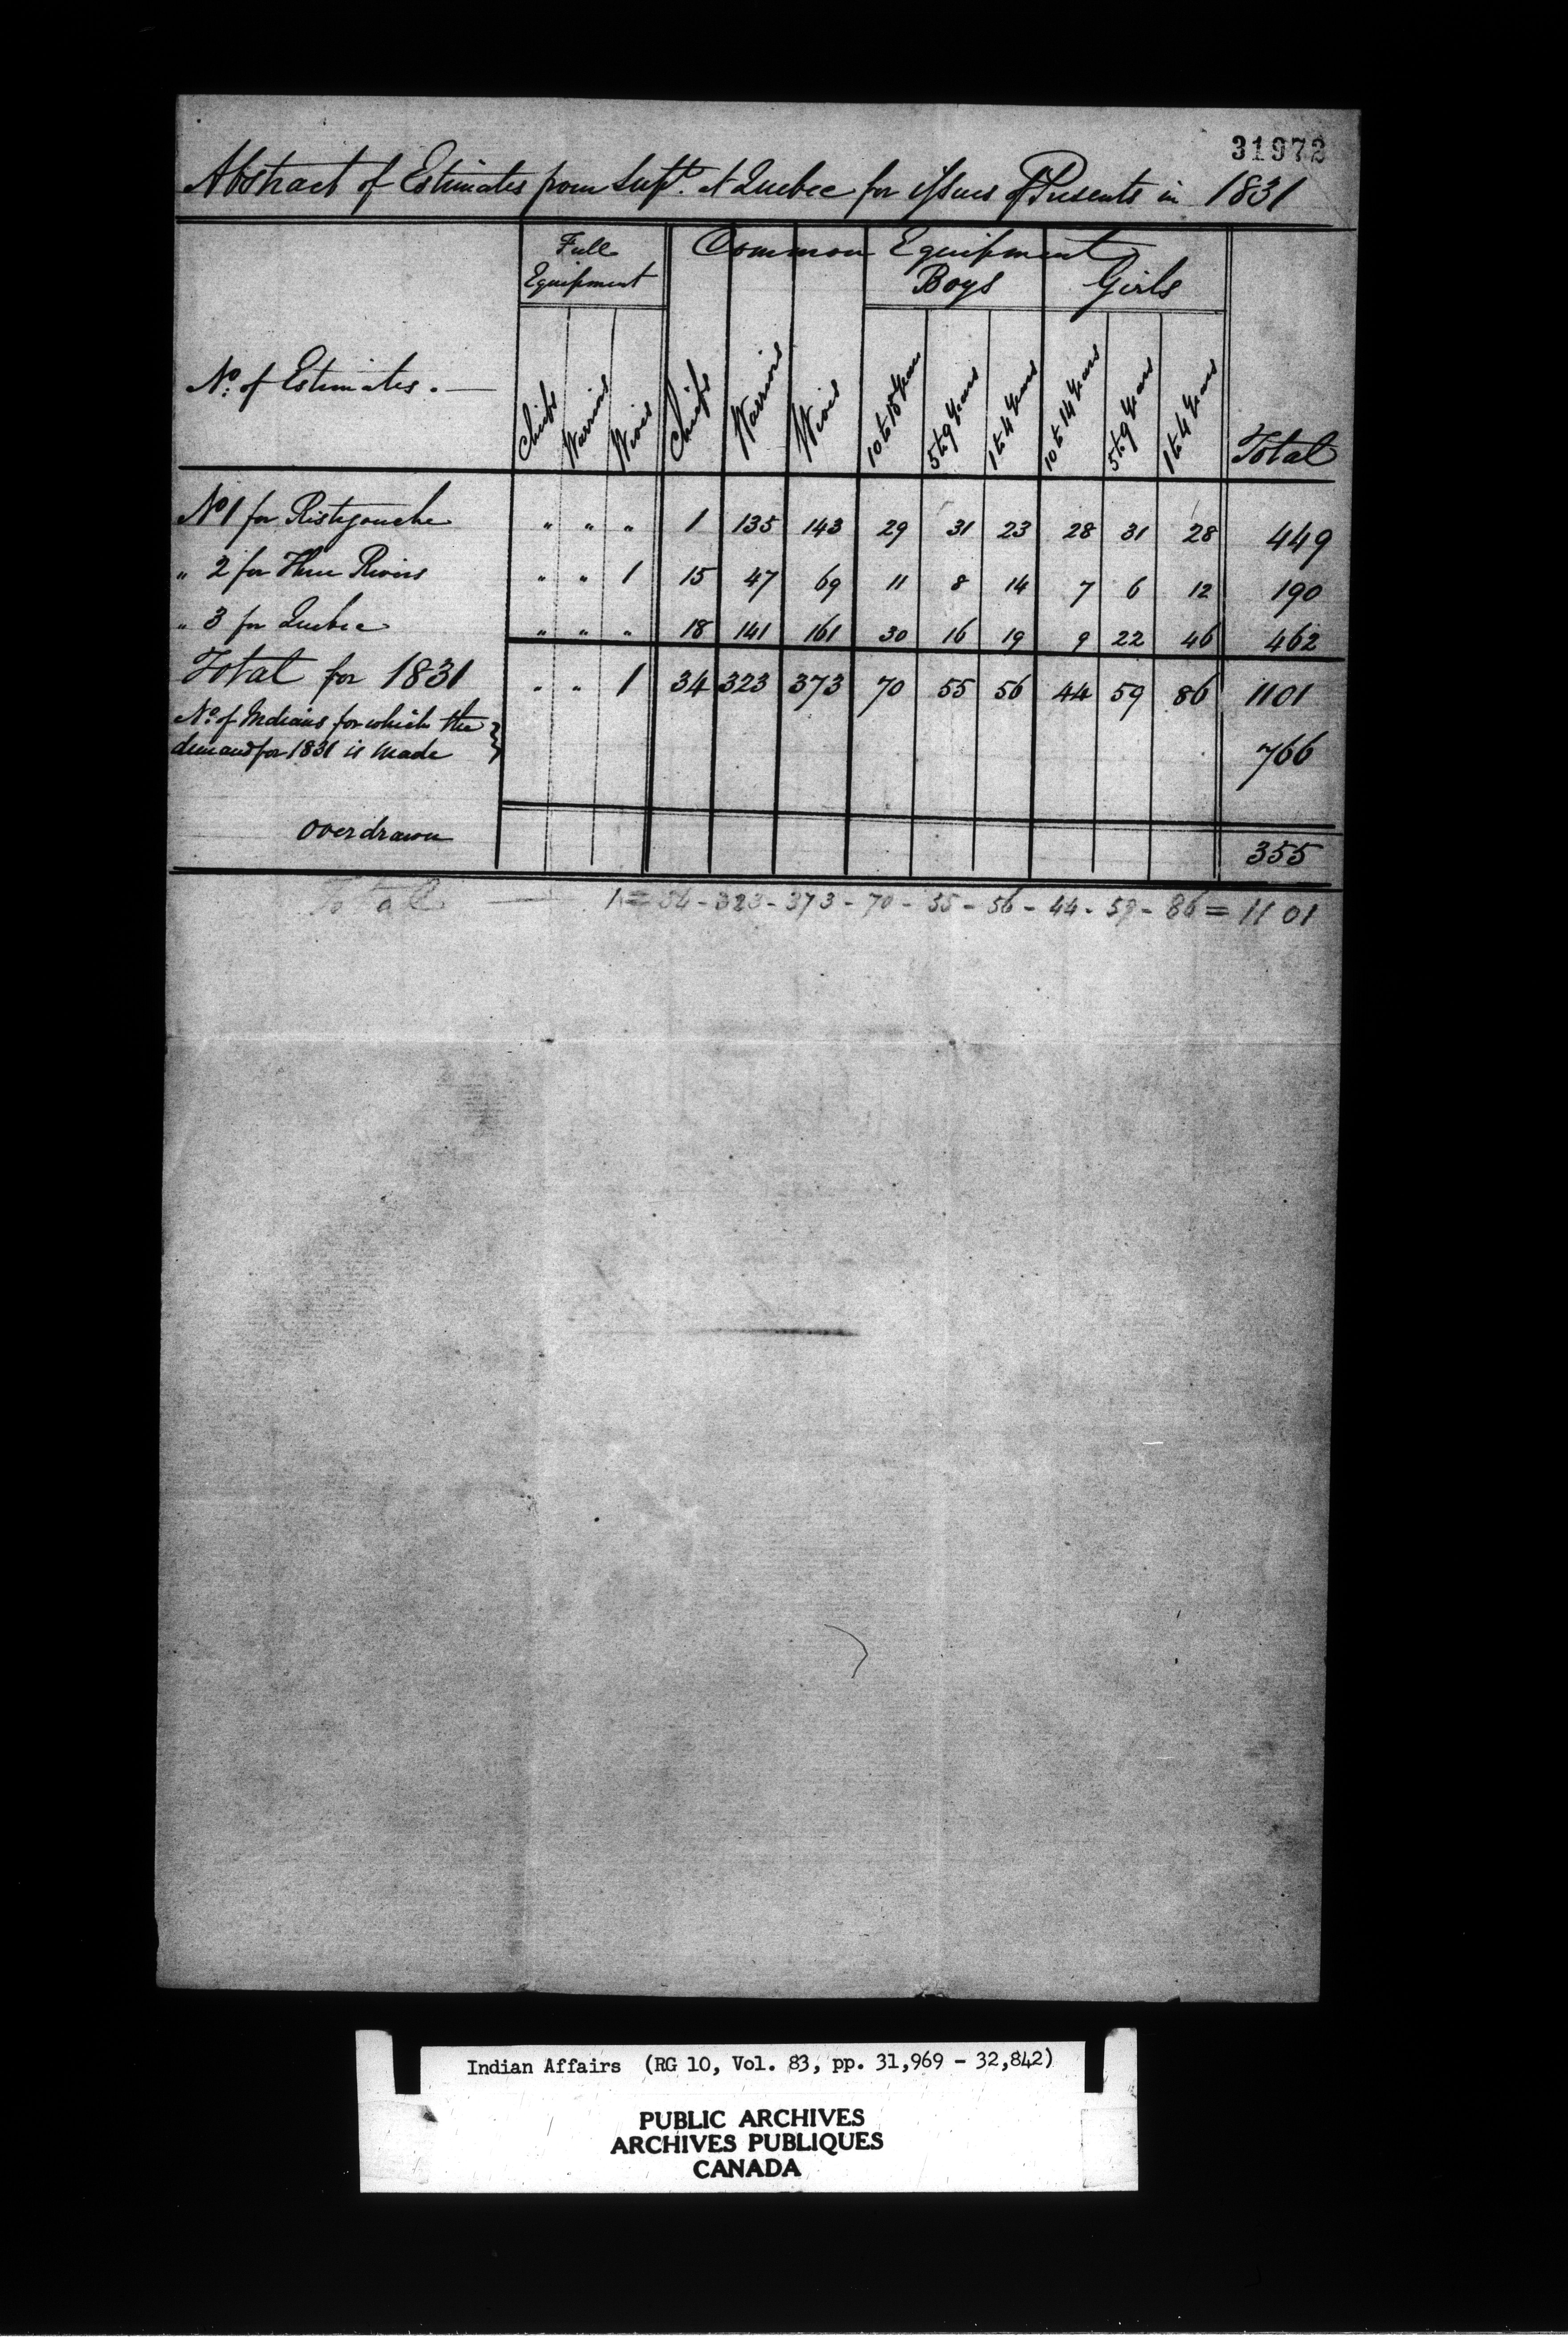 31972
Abstract of Estimates from Supt. at Quebec for issues of Presents in 1831
Full Equipment Common Equipment
Boys Girls
No. of Estimates. — Chiefs Warriors Wives Chiefs Warriors Wives 10 to 15 Years 5 to 9 Years 1 to 4 Years 10 to 14 Years 5 to 9 Years 1 to 4 Years Total
No 1 for Ristigouche " " " 1 135 143 29 31 23 28 31 28 449
" 2 for Three Rivers " " 1 15 47 69 11 8 14 7 6 12 190
" 3 for Quebec " " " 18 141 161 30 16 19 9 22 46 462
Total for 1831 " " 1 34 323 373 70 55 56 44 59 86 1101
No. of Indians for which the
demand for 1831 is made } 766
overdrawn 355
Total — 1 = 34 - 323 - 373 - 70 - 55 - 56 - 44 - 59 - 86 = 1101
Indian Affairs (RG 10, Vol. 83, pp. 31,969 - 32,842)
PUBLIC ARCHIVES
ARCHIVES PUBLIQUES
CANADA